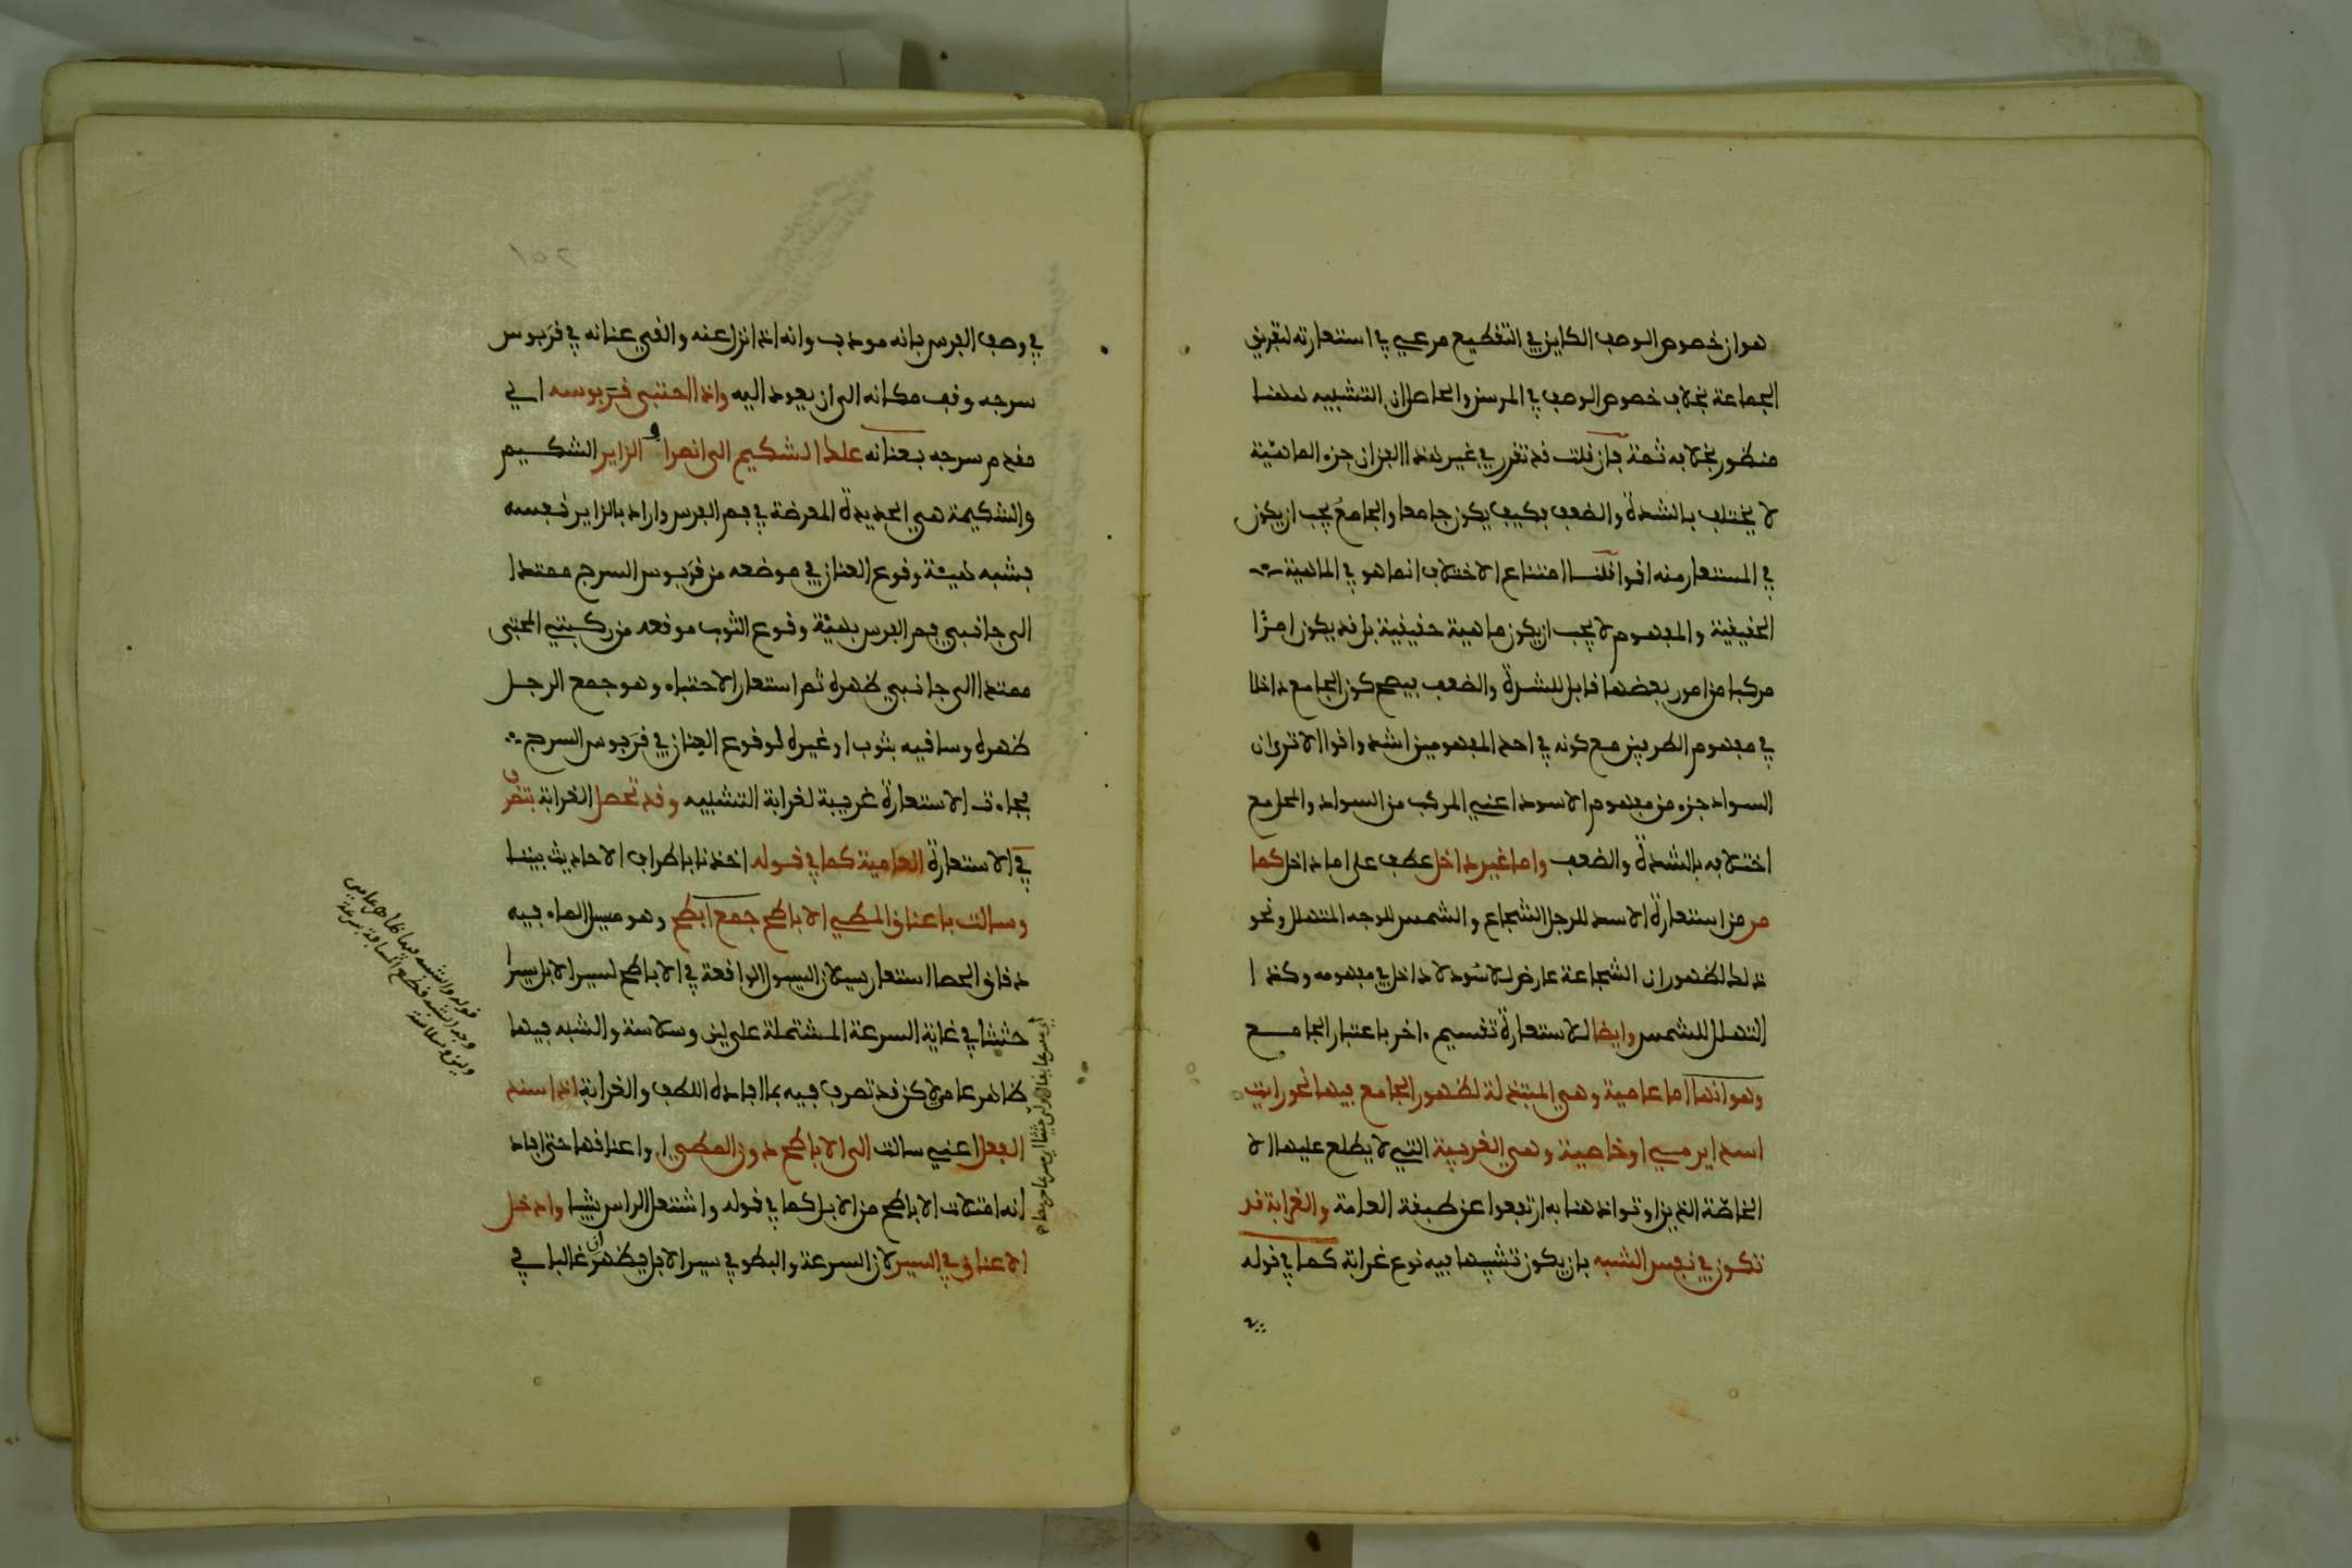 هو ان خصوص الوصف الكاين في التقطيع مرعي في استعارته لتفريق
الجماعة بخلاف خصوص الوصف في المرسن والحاصل ان التشبيه هاهنا
منظور بخلافه ثمة فان قلت قد تقرر في غير هذا الفن ان جزء الماهيّة
لا يختلف بالشدة والضعف فكيف يكون جامعا والجامع يجب ان يكون
في المستعار منه اقوا قلنا امتناع الاختلاف انما هو في الماهية
الحقيقية والمفهوم لا يجب ان يكون ماهية حقيقية بل قد يكون امرًا
مركبا من امور بعضها قابل للشدة والضعف فيصح كون الجامع داخلا
في مفهوم الطرفين مع كونه في احد المفهومين اشد واقوا الا ترى ان
السواد جزء من مفهوم الاسود اعني المركب من السواد والمحل مع
اختلافه بالشدة والضعف واما غير داخل عطف على اما داخل كما
مر من استعارة الاسد للرجل الشجاع والشمس للوجه المتهلل ونحو
ذلك لظهور ان الشجاعة عارض للاسود لا داخل في مفهومه وكذا
التهلل للشمس وايضا للاستعارة تقسيم ءاخر باعتبار الجامع
وهو انها اما عامية وهي المبتذلة لظهور الجامع فيها نحو رايت
اسدا يرمي او خاصية وهي الغريبة التي لا يطلع عليها الا
الخاصّة الذين اوتوا اذهنا به ارتفعوا عن طبقة العامة والغرابة قد
تكون في نفس الشبه بان يكون تشبيها فيه نوع غرابة كما في قوله
في
في وصف الفرس بانه مودب وانه اذا نزل عنه والقى عنانه في قربوس
سرجه وقف مكانه الى ان يعود اليه واذا احتبى قربوسه اي
مقدم سرجه بعنانه علك الشكيم الى انصراف الزاير الشكيم
والشكيمة هي الحديدة المعرضة في فم الفرس واراد بالزاير نفسه
فشبه هيئة وقوع العنان في موضعه من قربوس السرج ممتدا
الى جانبي فم الفرس بهيئة وقوع الثوب موقعه من ركبتي المحتبى
ممتدا الى جانبي ظهره ثم استعار الاحتباء وهو جمع الرجل
ظهره وساقيه بثوب او غيره لوقوع العنان في قربوس السرج
فجاءت الاستعارة غريبة لغرابة التشبيه وقد تحصل الغرابة بتصرف
في الاستعارة العامية كما في قوله اخذنا باطراف الاحاديث بيننا
وسالت باعناق المطي الاباطح جمع ابطح وهو مسيل الماء فيه
دقاق الحصا استعار سيلان السيول الواقعة في الاباطح لسير الابل سيرا
حثيثا في غاية السرعة المشتملة على لين وسلاسة والشبه فيها
ظاهر عامي لاكن قد تصرف فيه بما افاده اللطف والغرابة اذ اسند
الفعل اعني سالت الى الاباطح دون المطي او اعناقها حتى افاد
انه امتلات الاباطح من الابل كما في قوله واشتعل الراس شيبا وادخل
الاعناق في السير لان السرعة والبطو في سير الابل يظهران غالبا في
قوله والشبه فيها ظاهر عامي
وجه الشبه قطع المسافة بسرعة